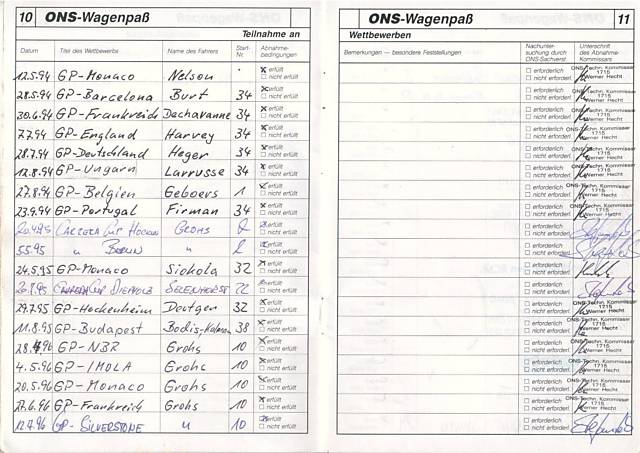 10 ONS-Wagenpaß
Teilnahme an
Datum Titel des Wettbewerbs Name des Fahrers Start-Nr. Abnahme-bedingungen
12.5.94 GP-Monaco Nelson erfüllt nicht erfüllt
28.5.94 GP-Barcelona Burt 34 erfüllt nicht erfüllt
30.6.94 GP-Frankreich Dacharvanne 34 erfüllt nicht erfüllt
7.7.94 GP-England Harvey 34 erfüllt nicht erfüllt
28.7.94 GP-Deutschland Heger 34 erfüllt nicht erfüllt
12.8.94 GP-Ungarn Larrusse 34 erfüllt nicht erfüllt
27.8.94 GP-Belgien Geboers 1 erfüllt nicht erfüllt
23.9.94 GP-Portugal Firman 34 erfüllt nicht erfüllt
Carrera Cup Hocken Grohs 2 erfüllt nicht erfüllt
5.5.95 " Berlin " 2 erfüllt nicht erfüllt
24.5.95 GP-Monaco 32 erfüllt nicht erfüllt
Carrera Cup Diepholz Seelenhorst 22 erfüllt nicht erfüllt
29.7.95 GP-Hockenheim 32 erfüllt nicht erfüllt
11.8.95 GP-Budapest 38 erfüllt nicht erfüllt
28.4.96 GP-NBR Grohs 10 erfüllt nicht erfüllt
4.5.96 GP-IMOLA Grohs 10 erfüllt nicht erfüllt
20.5.96 GP-Monaco Grohs 10 erfüllt nicht erfüllt
GP-Frankreich Grohs 10 erfüllt nicht erfüllt
12.7.96 GP-SILVERSTONE " 10 erfüllt nicht erfüllt
ONS-Wagenpaß 11
Wettbewerben
Bemerkungen — besondere Feststellungen Nachunter-suchung durch ONS-Sachverst. Unterschrift des Abnahme-Kommissars
erforderlich nicht erforderl. ONS-Techn. Kommissar 1715 Werner Hecht
erforderlich nicht erforderl. ONS-Techn. Kommissar 1715 Werner Hecht
erforderlich nicht erforderl. ONS-Techn. Kommissar 1715 Werner Hecht
erforderlich nicht erforderl. ONS-Techn. Kommissar 1715 Werner Hecht
erforderlich nicht erforderl. ONS-Techn. Kommissar 1715 Werner Hecht
erforderlich nicht erforderl. ONS-Techn. Kommissar 1715 Werner Hecht
erforderlich nicht erforderl. ONS-Techn. Kommissar 1715 Werner Hecht
erforderlich nicht erforderl. ONS-Techn. Kommissar 1715 Werner Hecht
erforderlich nicht erforderl.
erforderlich nicht erforderl.
erforderlich nicht erforderl.
erforderlich nicht erforderl.
erforderlich nicht erforderl. ONS-Techn. Kommissar 1715 Werner Hecht
erforderlich nicht erforderl. ONS-Techn. Kommissar 1715 Werner Hecht
erforderlich nicht erforderl. ONS-Techn. Kommissar 1715 Werner Hecht
erforderlich nicht erforderl. ONS-Techn. Kommissar 1715 Werner Hecht
erforderlich nicht erforderl. ONS-Techn. Kommissar 1715 Werner Hecht
erforderlich nicht erforderl. ONS-Techn. Kommissar 1715 Werner Hecht
erforderlich nicht erforderl.